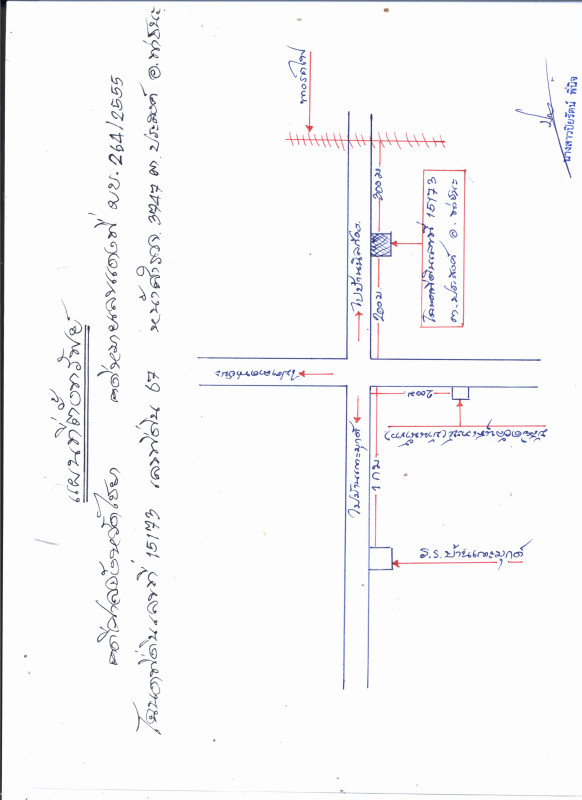 แผนที่ตั้งทรัพย์
คดีศาลจังหวัดไชยา คดีหมายเลขแดงที่ ผบ. 264/2555
โฉนดที่ดินเลขที่ 15173 เลขที่ดิน 67 หน้าสำรวจ 3747 ต. ประสงค์ อ. ท่าชนะ
ทางรถไฟ
300 ม
200 ม
ไปบ้านนิลก้อง
โฉนดที่ดินเลขที่ 15173
ต. ประสงค์ อ. ท่าชนะ
ไปตลาดท่าชนะ
200 ม
ไปบ้านเกาะมุกด์
1 กม
ร.ร. บ้านเกาะมุกด์
นางสาวปิยรัตน์ พินิจ